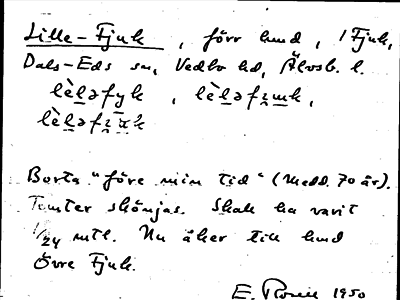 Lille-Fjuk, förr hmd, i Fjuk,
Dals-Eds sn, Vedbo hd, Älvsb. l.
lèləfyk, lèləfɩ̯ɯk,
Borta "före min tid" (Medd. 70 år).
Tomter skönjas. Skall ha varit
1/24 mtl. Nu åker till hmd
Övre Fjuk.
E. 1950